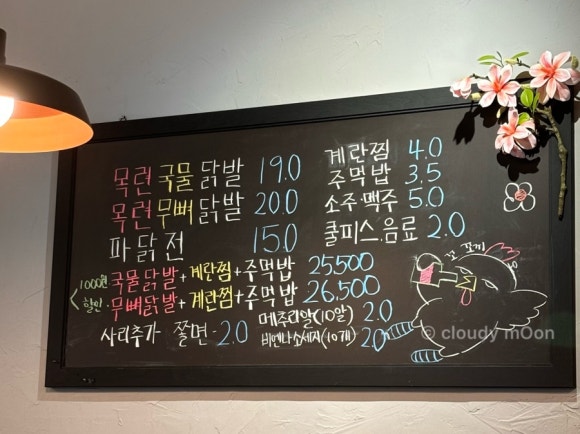 목련 국물 닭발 19.0
목련 무뼈 닭발 20.0
파닭전 15.0
계란찜 4.0
주먹밥 3.5
소주·맥주 5.0
쿨피스,음료 2.0
1000원 할인
국물닭발+계란찜+주먹밥 25,500
무뼈닭발+계란찜+주먹밥 26,500
사리추가 쫄면-2.0
메추리알(10알) 2.0
비엔나소세지(10개) 2.0
꼬꼬끼
© cloudy mOon